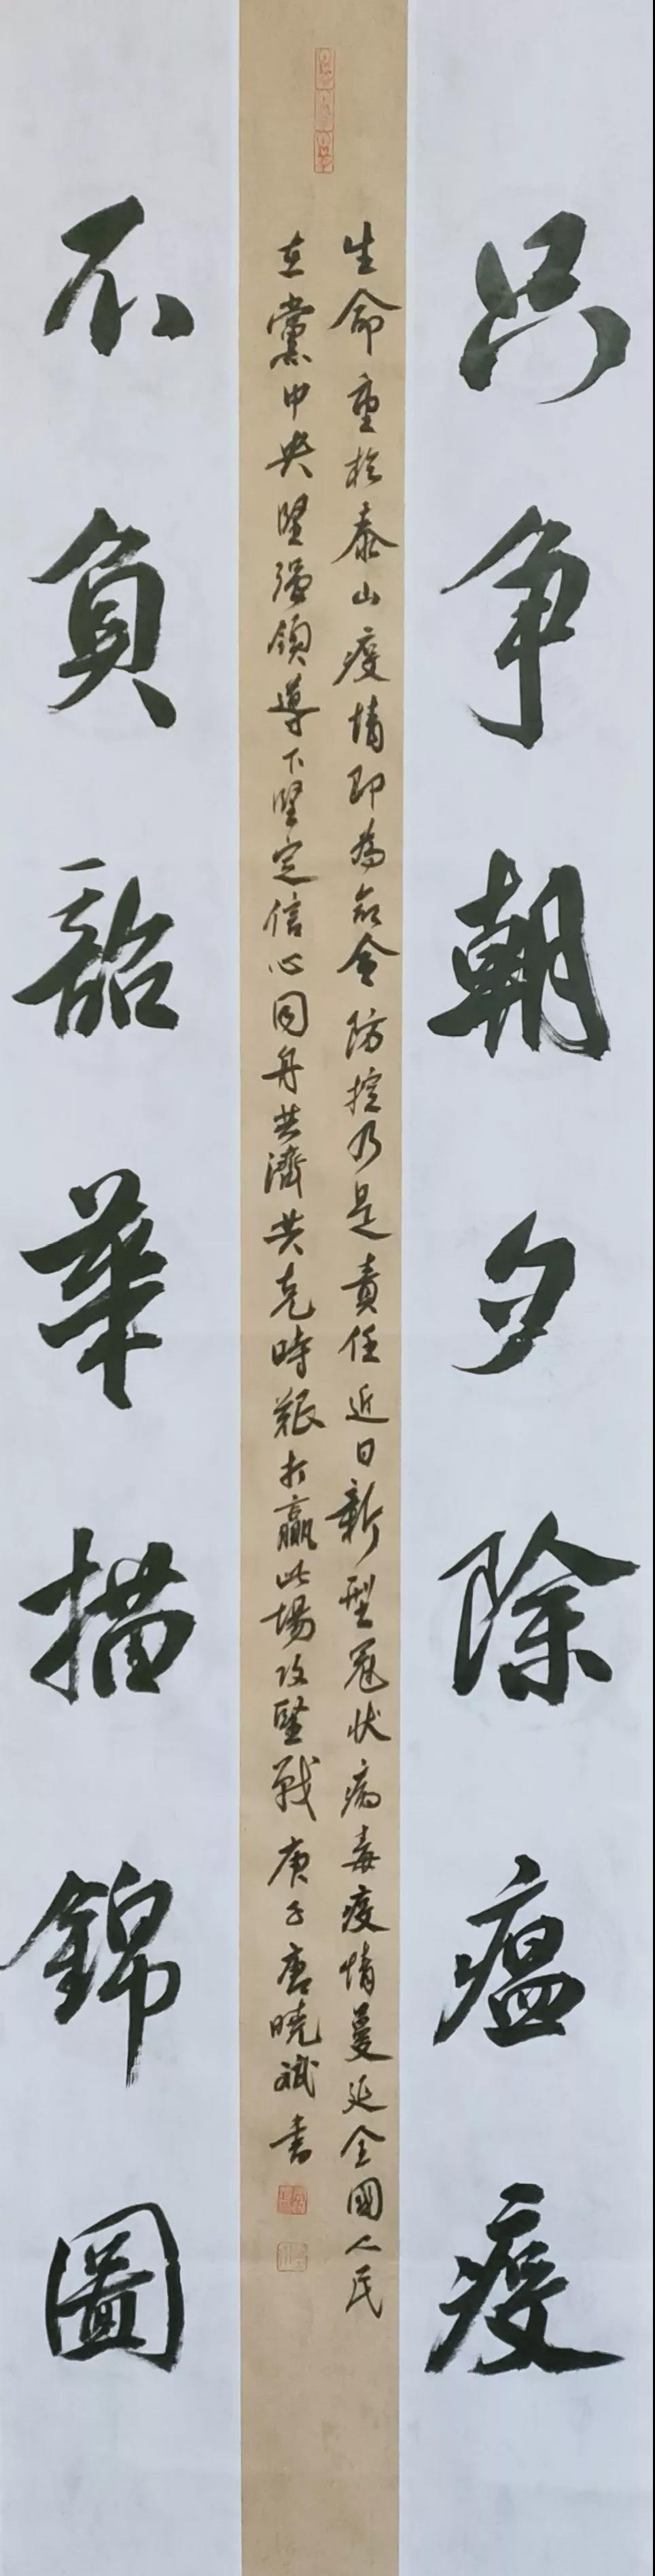 只争朝夕除瘟疫
生命重於泰山疫情即为命令防控乃是責任近日新型冠状病毒疫情蔓延全國人民
在黨中央堅强領導下堅定信心同舟共濟共克時艱打贏此場攻堅戰庚子唐曉斌書
不負韶華描錦圖